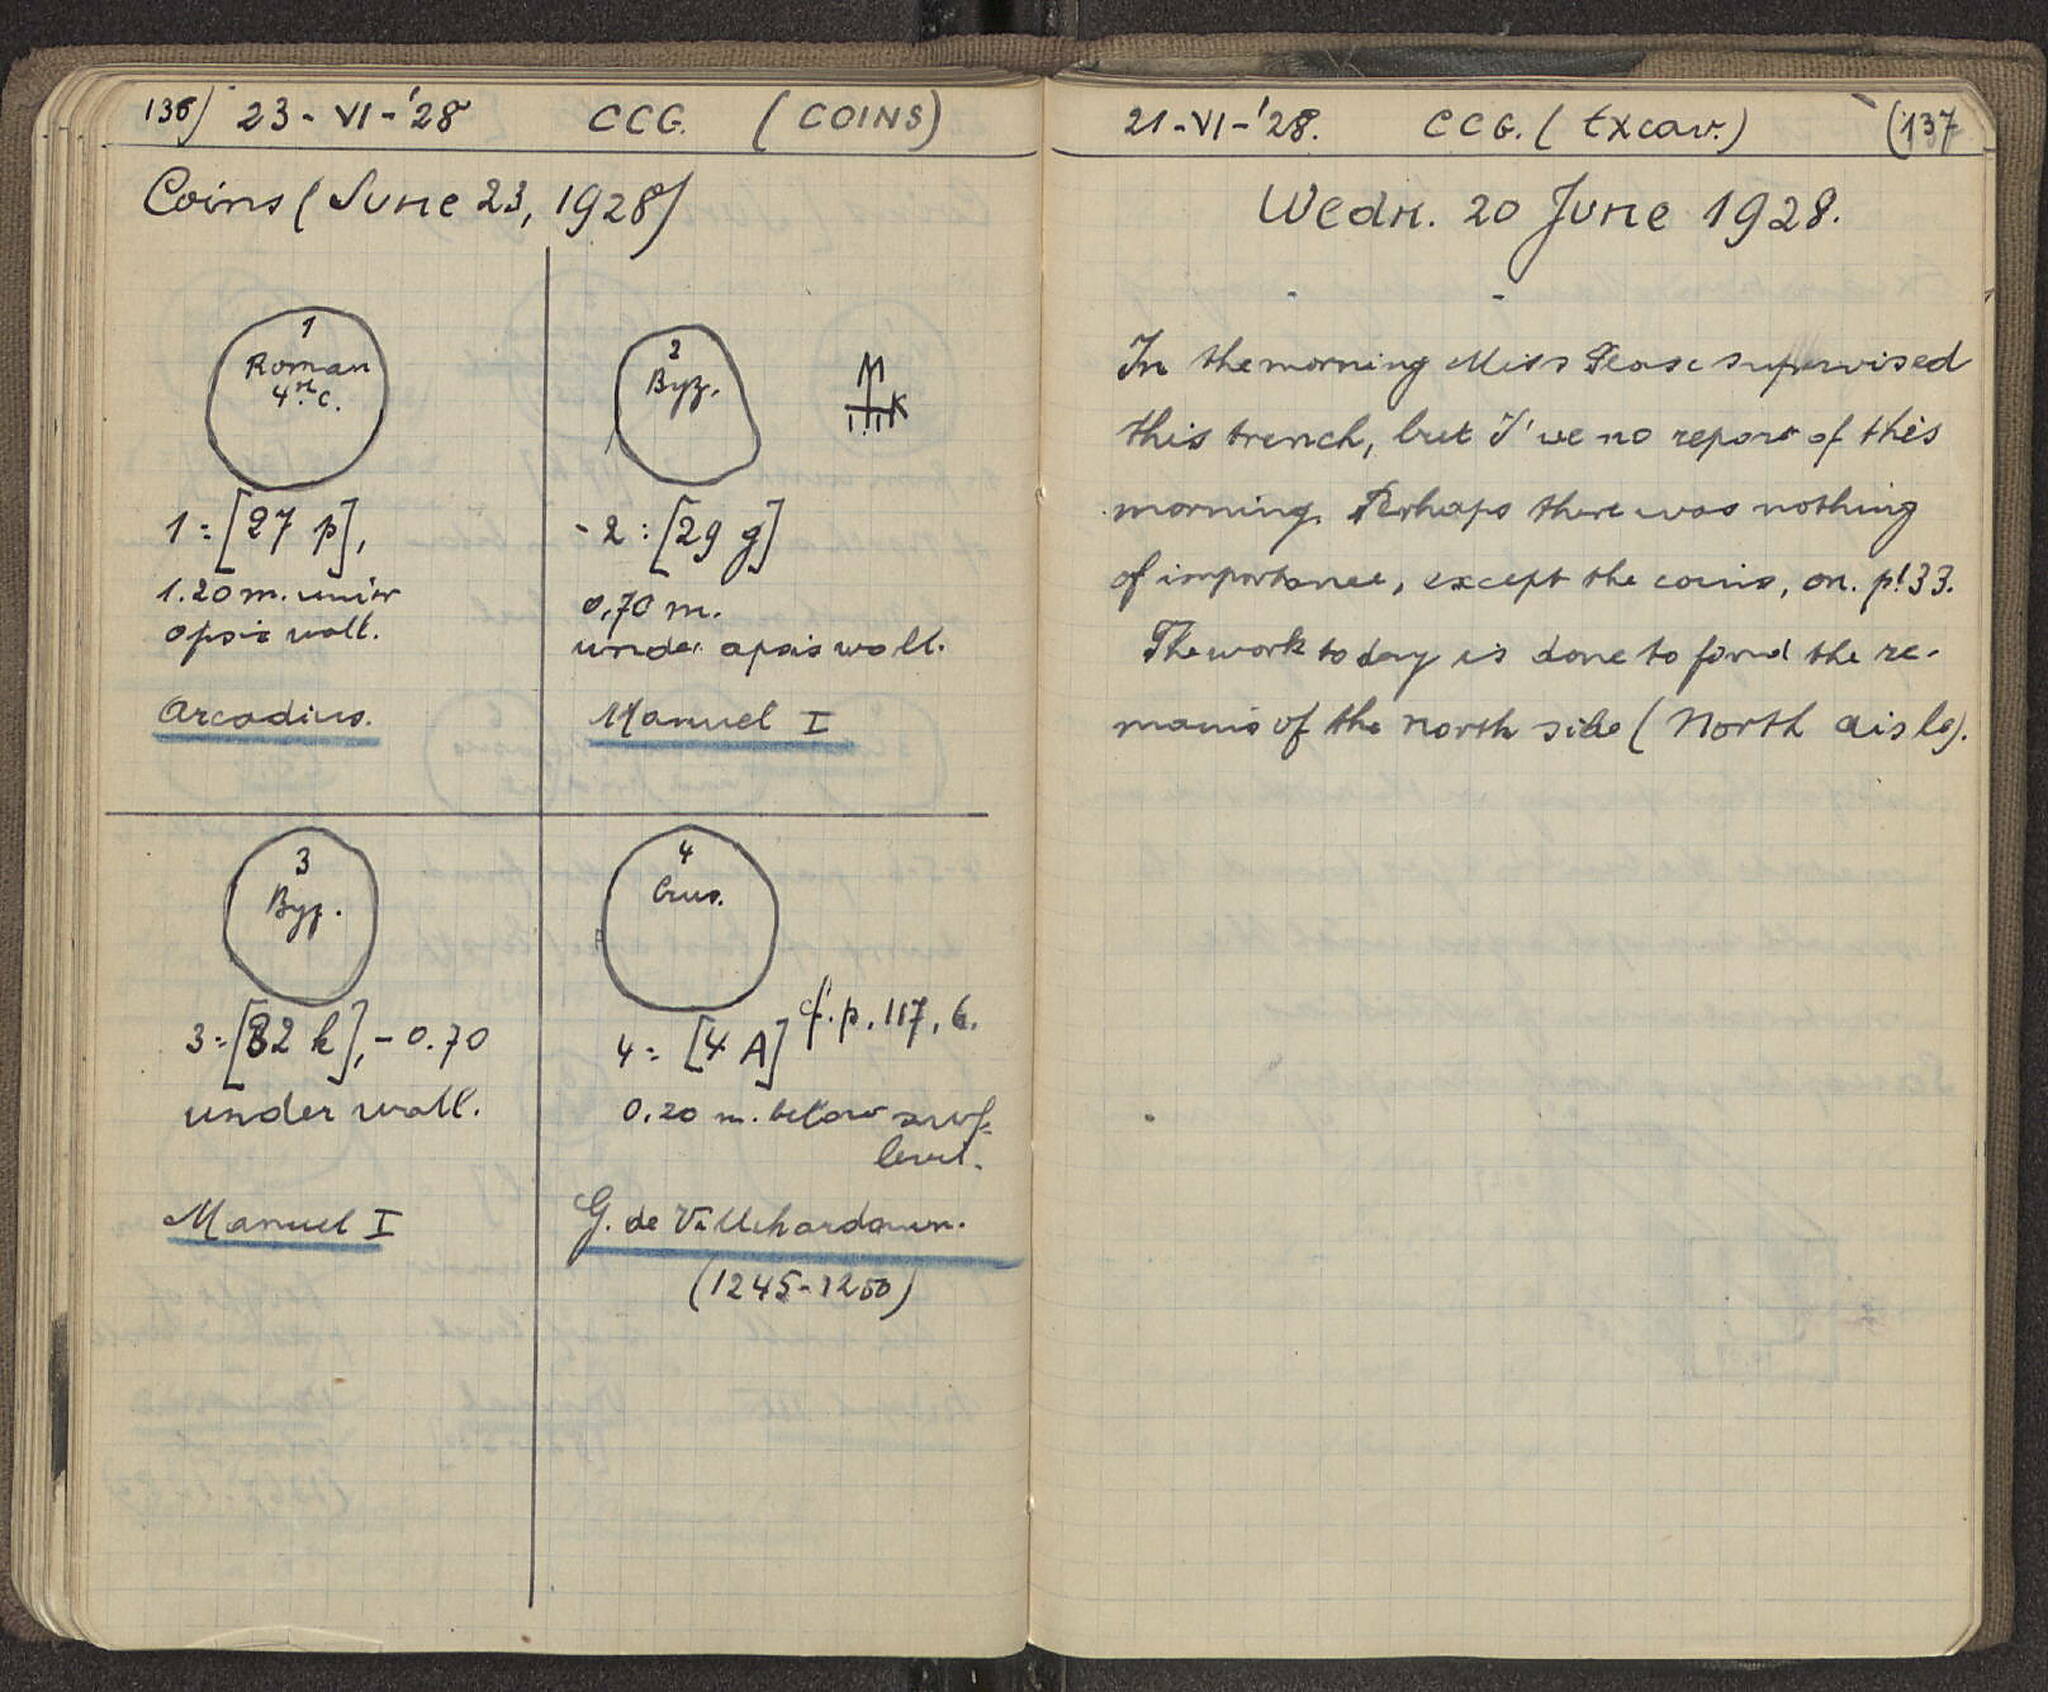 136) 23-VI-'28 CCG. (COINS)
Coins (June 23, 1928)
1
Roman
4th c.
1=[27 p],
1.20 m. under
apsis wall.
Arcadius.
2
Byz.
-2:[29 g]
0,70 m.
under apsis wall.
Manuel I
3
Byz.
3=[82 k],-0.70
under wall.
Manuel I
4
Crus.
4= [4 A] cf. p. 117, 6.
0.20 m. below surf.
level.
G. de Villehardouin.
(1245-1250)
21-VI-'28. CCG. (Excav.) (137
Wedn. 20 June 1928.
In the morning Miss Pease supervised
this trench, but I've no report of this
morning. Perhaps there was nothing
of importance, except the coins, on. p. 133.
The work today is done to find the re-
mains of the north side (North aisle).